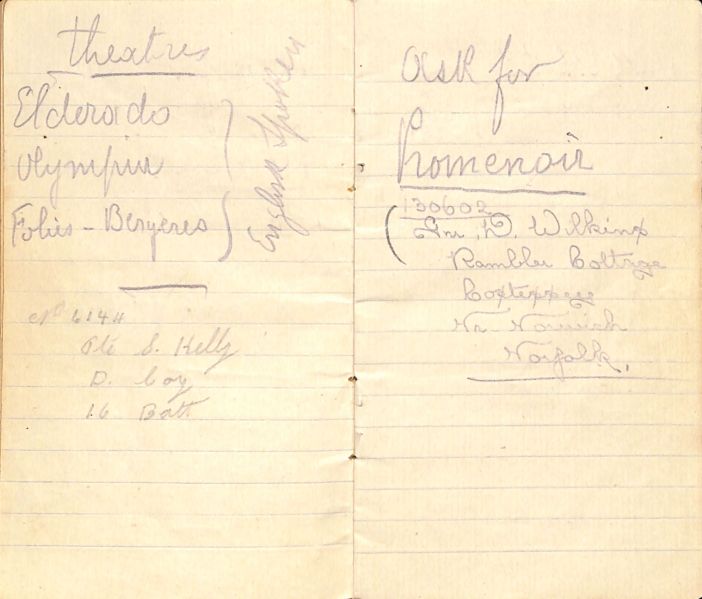 theatres
Elderado
Olympia
Folies-Bergeres
English Spoken
No 6144
Pte S. Kelly
D. Coy
16 Batt
Ask for
Promenoir
130602
Gnr. D. Wilkins
Rambler Cottage
Nr. Norwich
Norfolk.